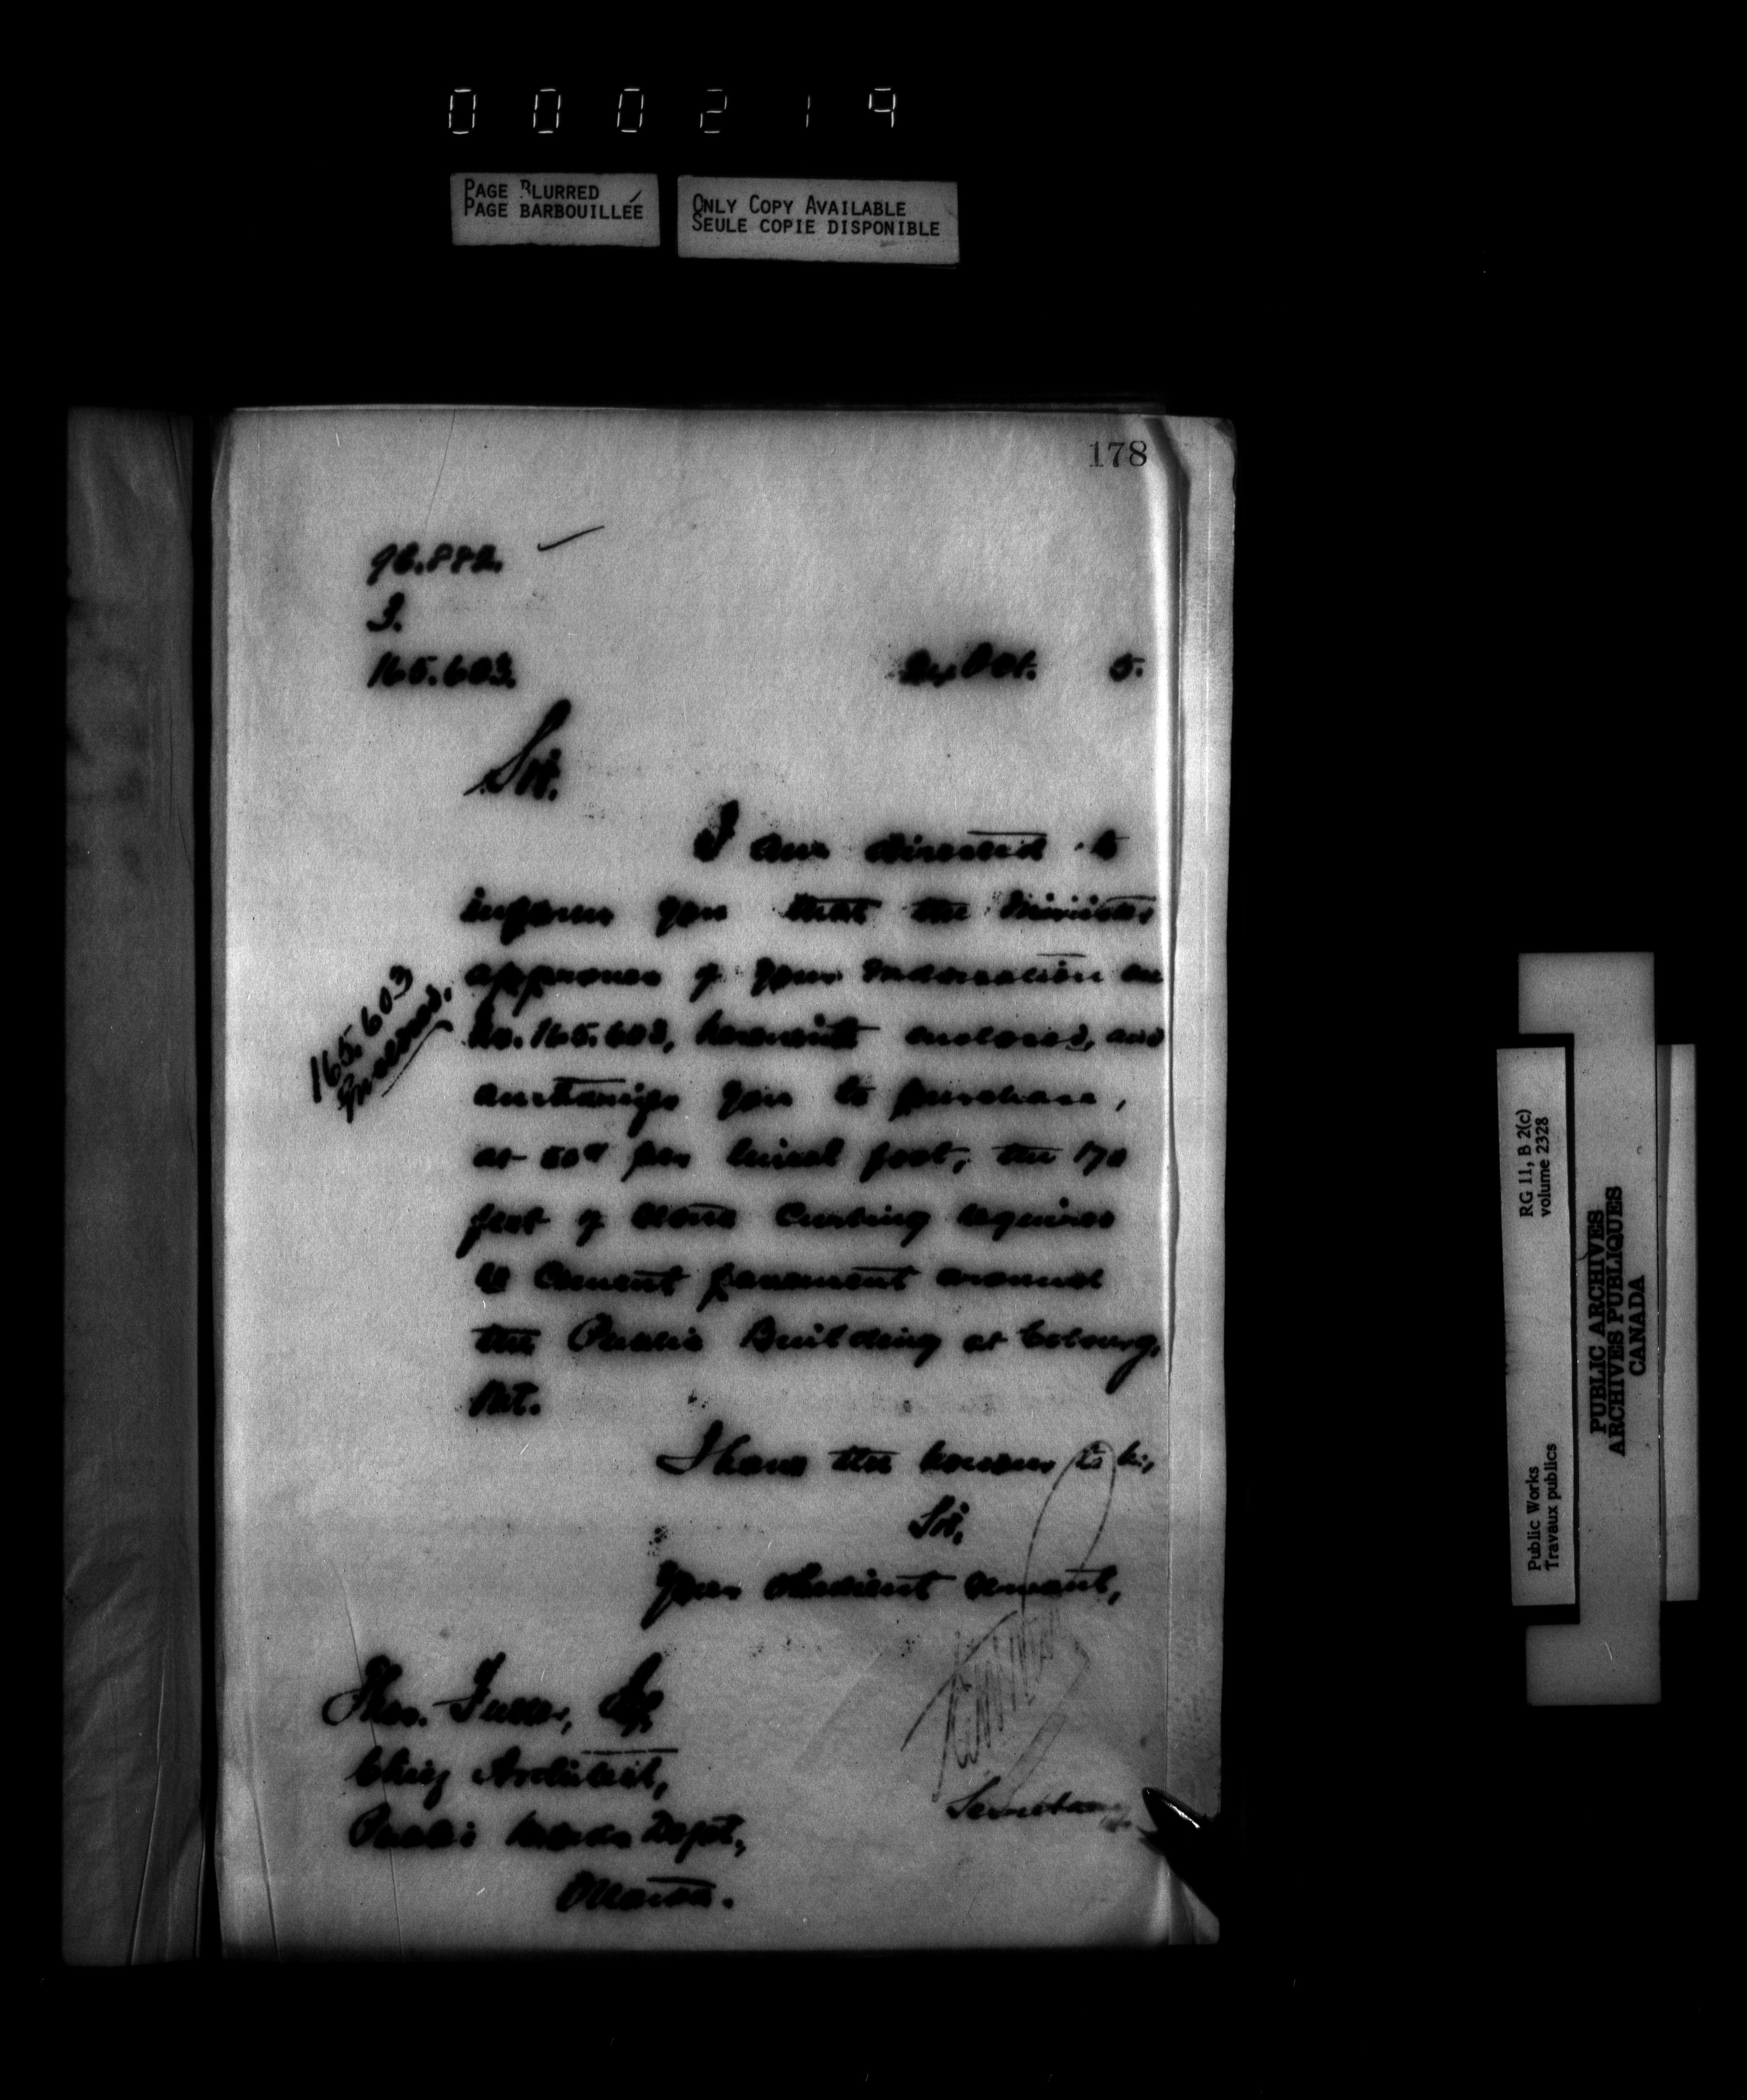 000219
PAGE BLURRED
PAGE BARBOUILLÉE
ONLY COPY AVAILABLE
SEULE COPIE DISPONIBLE
178
3.
165.603.
Oct. 5.
Sir.
I am directed to
inform you that the Minister
approves of your indorsation on
No. 165.603, herewith enclosed, and
165.603
Enclosed.
authorizes you to purchase,
at 50c per lineal foot, the 170
feet of stone curbing required
to cement pavement around
the Public Building at Cobourg,
Ont.
I have the honour to be,
Sir,
Your obedient servant,
Secretary.
Thos. Fuller, Esq,
Chief Architect,
Public Works Dept.,
Ottawa.
RG 11, B 2(c)
volume 2328
Public Works
Travaux publics
PUBLIC ARCHIVES
ARCHIVES PUBLIQUES
CANADA